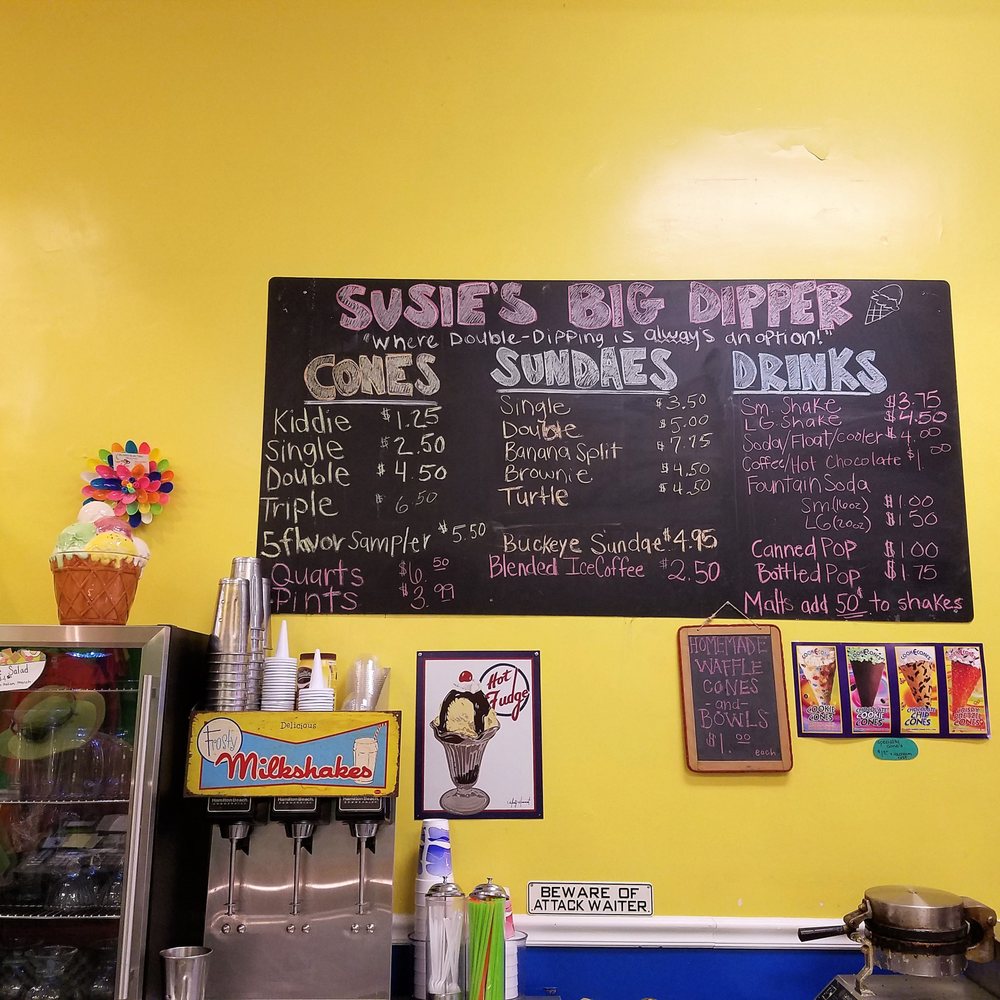 SUSIE'S BIG DIPPER
"Where Double-Dipping is always an option!"
CONES
Kiddie $1.25
Single $2.50
Double $4.50
Triple $6.50
5 flavor Sampler $5.50
Quarts $6.50
Pints $3.99
SUNDAES
Single $3.50
Double $5.00
Banana Split $7.75
Brownie $4.50
Turtle $4.50
Buckeye Sundae $4.95
Blended Ice Coffee $2.50
DRINKS
Sm. Shake $3.75
LG. Shake $4.50
Soda/Float/Cooler $4.00
Coffee/Hot Chocolate $1.00
Fountain Soda
Sm (16oz) $1.00
LG (20oz) $1.50
Canned Pop $1.00
Bottled Pop $1.75
Malts add 50¢ to shakes
HOMEMADE
WAFFLE
CONES
-and-
BOWLS
$1.00
each
COOKIE
CONES
CHOCOLATE
COOKIE
CONES
CHOCOLATE
CHIP
CONES
PRETZEL
CONES
Specialty
Cones
Salad
Delicious
Frosty
Milkshakes
Hamilton Beach
Hamilton Beach
Hamilton Beach
Hot
Fudge
BEWARE OF
ATTACK WAITER